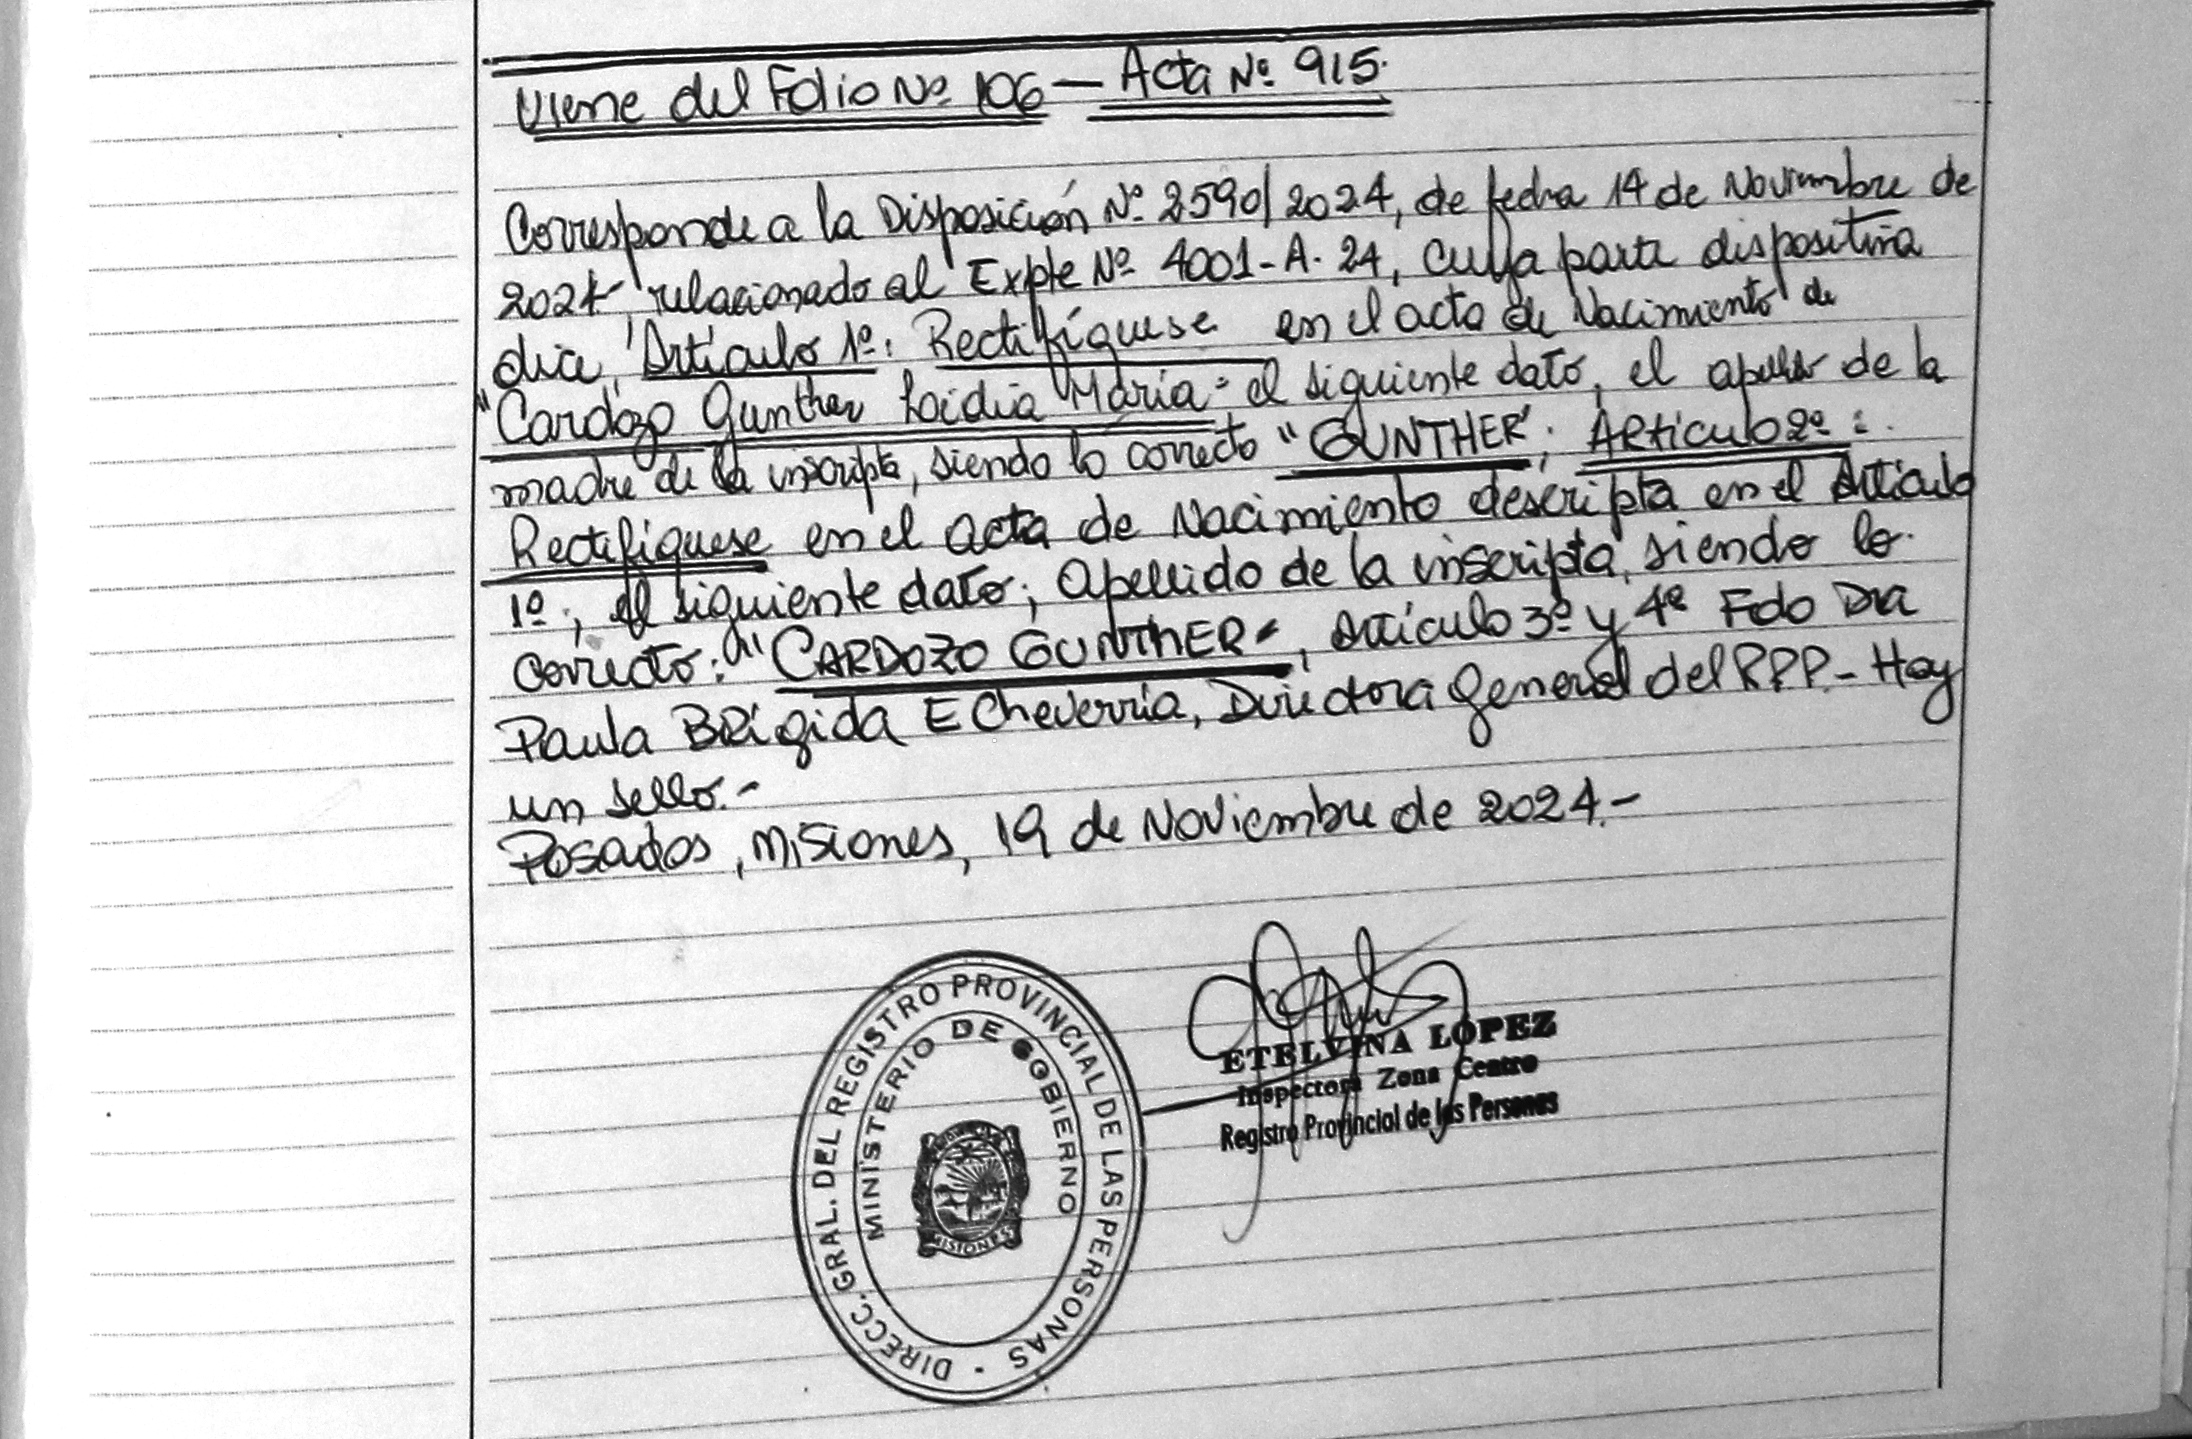 Viene del Folio Nº 106 — Acta Nº 915.
Corresponde a la Disposición Nº 2590/2024, de fecha 14 de Noviembre de
2024, relacionado al Expte Nº 4001-A-24, cuya parte dispositiva
dice, Artículo 1º: Rectifíquese en el acta de Nacimiento de
"Cardozo Gunther María" el siguiente dato, el apellido de la
madre de la inscripta, siendo lo correcto "GUNTHER"; Artículo 2º:
Rectifíquese en el acta de Nacimiento descripta en el Artículo
1º; el siguiente dato; Apellido de la inscripta, siendo lo
correcto: "CARDOZO GUNTHER", Artículo 3º y 4º Fdo Dra
Paula Brígida Echeverría, Directora General del R.P.P.- Hay
un sello.-
Posadas, Misiones, 19 de Noviembre de 2024.-
DIRECC. GRAL. DEL REGISTRO PROVINCIAL DE LAS PERSONAS
MINISTERIO DE GOBIERNO
MISIONES
ETELVINA LOPEZ
Inspectora Zona Centro
Registro Provincial de las Personas